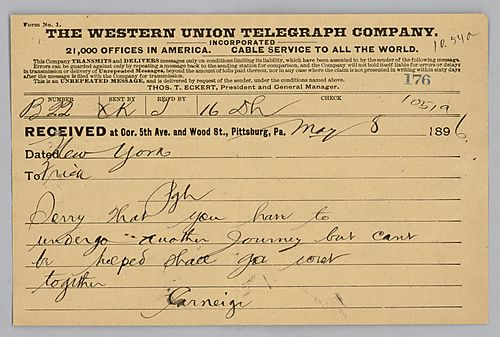 Form No. 1.
THE WESTERN UNION TELEGRAPH COMPANY.
INCORPORATED
21,000 OFFICES IN AMERICA. CABLE SERVICE TO ALL THE WORLD.
This Company TRANSMITS and DELIVERS messages only on conditions limiting its liability, which have been assented to by the sender of the following message.
Errors can be guarded against only by repeating a message back to the sending station for comparison, and the Company will not hold itself liable for errors or delays
in transmission or delivery of Unrepeated Messages, beyond the amount of tolls paid thereon, nor in any case where the claim is not presented in writing within sixty days
after the message is filed with the Company for transmission.
This is an UNREPEATED MESSAGE, and is delivered by request of the sender, under the conditions named above.
THOS. T. ECKERT, President and General Manager.
176
NUMBER SENT BY REC'D BY CHECK
16 Dh
1051a
RECEIVED at Cor. 5th Ave. and Wood St., Pittsburg, Pa. May 8 1896
Dated New York
To Frick
Pgh
Sorry that you have to
undergo another Journey but cant
be helped shall go west
together
Carnegie